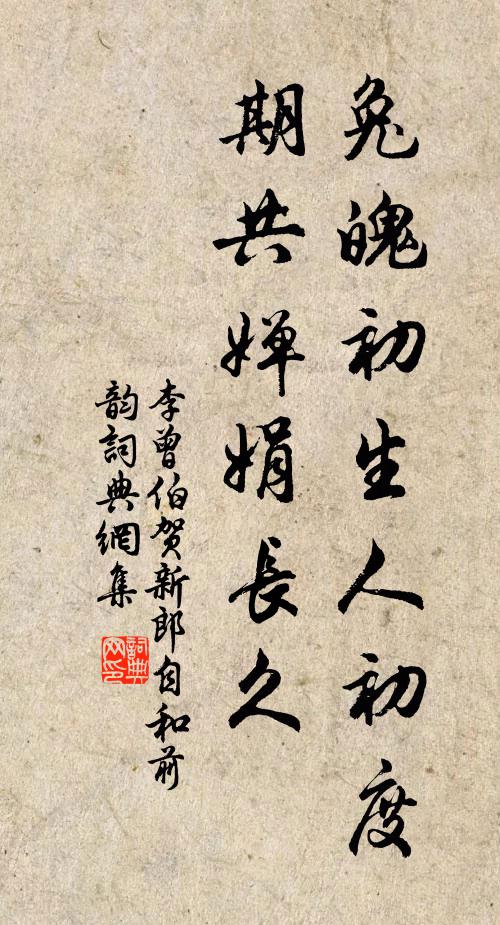 兔魄初生人初度
期共嬋娟長久
李曾伯賀新郎自和前
韵詞典網集
詞典
网印